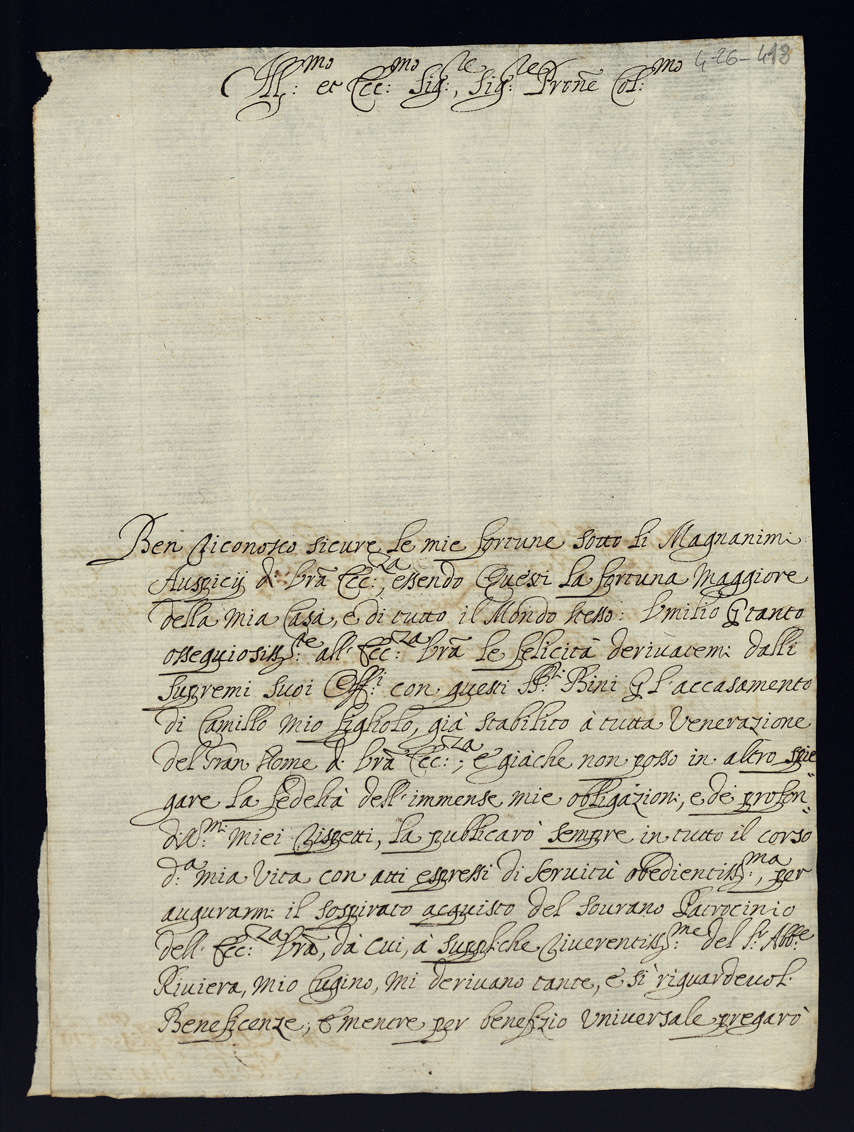 4-26-413
Ill:mo et Ecc:mo Sig:re, Sig:re Prone Col:mo
Ben riconosco sicure le mie fortune sotto li Magnanim:
Auspicij d: Vra Ecc:za, essendo Questi la fortuna Maggiore
della mia Casa, e di tutto il Mondo stesso: Umilio
osseguiosiss:te all' Ecc:za Vra le felicità derivatem: dalli
Supremi suoi Off:i con questi SS:ri Bini l'accasamento
di Camillo mio figliolo, già stabilito à tutta Venerazione
del Gran Nome d: Vra Ecc:za; e giàche non posso in altro spie
gare la fedeltà dell' immense mie obligazion:, e de profon
diss:mi miei rispetti, la publicarò sempre in tutto il corso
d:a mia Vita con atti espressi di servitù obedientiss:ma, per
augurarm: il sospirato acquisto del sourano Patrocinio
dell' Ecc:za Vra, dà cui, à suppliche riverentiss:me del Sr: Abb:e
Riviera, mio Cugino, mi derivano tante, e sì riguardevol:
Beneficenze; E mentre per benefizio Universale pregarò